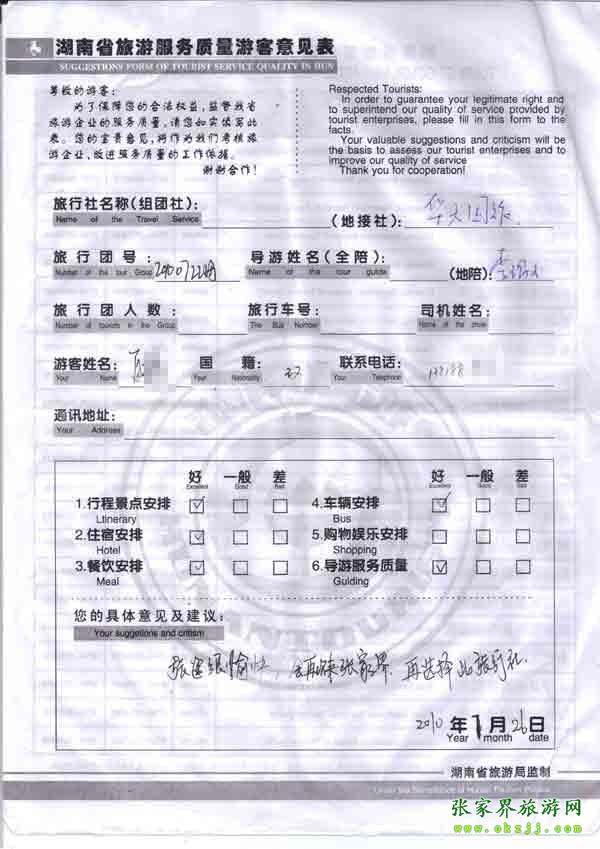 湖南省旅游服务质量游客意见表
SUGGESTIONS FORM OF TOURIST SERVICE QUALITY IN HUN
尊敬的游客:
为了保障您的合法权益,监督我省
旅游企业的服务质量,请您如实填写此
表。您的宝贵意见,将作为我们考核旅
游企业,改进服务质量的工作依据。
谢谢合作!
Respected Tourists:
In order to guarantee your legitimate right and
to superintend our quality of service provided by
tourist enterprises, please fill in this form to the
facts.
Your valuable suggestions and criticism will be
the basis to assess our tourist enterprises and to
improve our quality of service
Thank you for cooperation!
旅行社名称(组团社):
Name of the Travel Service
(地接社):
旅行团号:
Number of the tour Group
导游姓名(全陪):
Name of the tour guide
(地陪):
旅行团人数:
Number of tourists in the Group
旅行车号:
The Bus Number
司机姓名:
Name of the
游客姓名:
Your Name
国籍:
Your Nationality
联系电话:
Your Telephone
通讯地址:
Your Address
好 一般 差 好 一般 差
Excellent Good Bad Excellent Good Bad
1.行程景点安排 4.车辆安排
Ltinerary Bus
2.住宿安排 5.购物娱乐安排
Hotel Shopping
3.餐饮安排 6.导游服务质量
Meal Guiding
您的具体意见及建议:
Your suggetions and critism
旅途很愉快,会再来张家界 再选择此旅行社.
2010年1月26日
Year month date
湖南省旅游局监制
张家界旅游网
www.okzjj.com